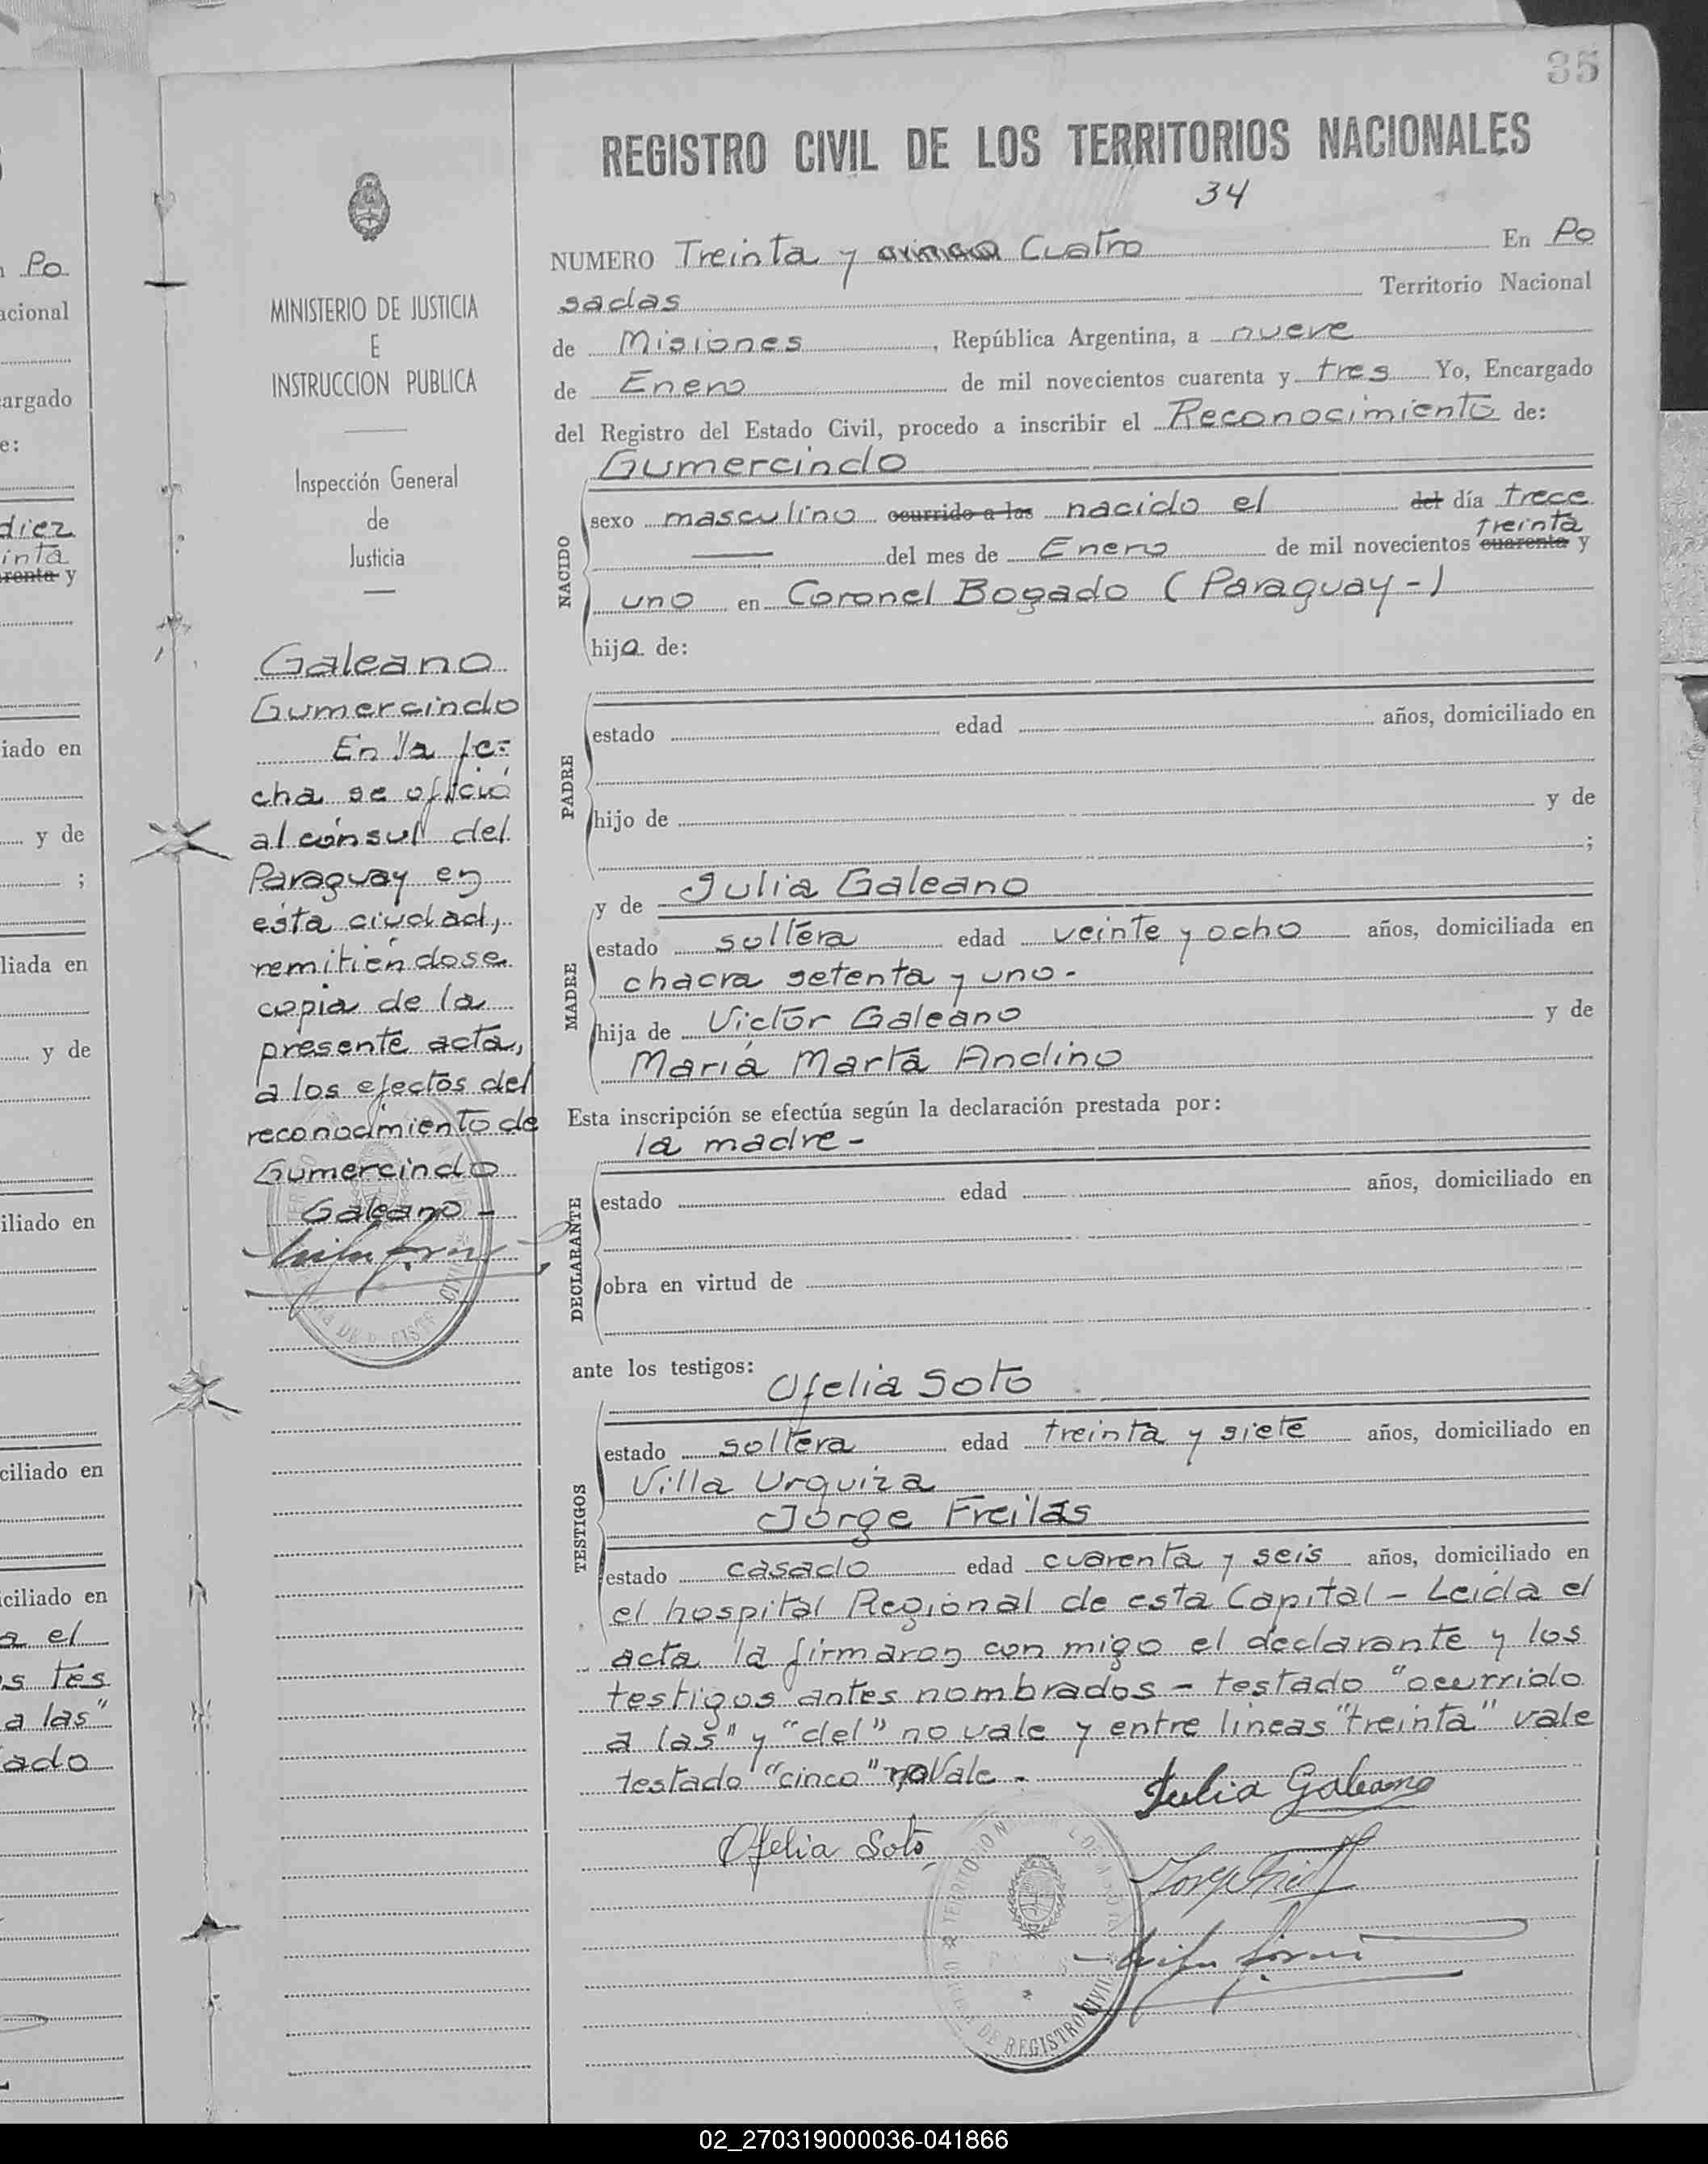 35
REGISTRO CIVIL DE LOS TERRITORIOS NACIONALES
34
NUMERO Treinta y cinco Cuatro En Po
sadas Territorio Nacional
de Misiones, República Argentina, a nueve
de Enero de mil novecientos cuarenta y tres Yo, Encargado
del Registro del Estado Civil, procedo a inscribir el Reconocimiento de:
Gumercindo
NACIDO
sexo masculino ocurrido a las nacido el del día trece
treinta
del mes de Enero de mil novecientos cuarenta y
uno en Coronel Bogado (Paraguay-)
hijo de:
PADRE
estado edad años, domiciliado en
hijo de y de
;
MADRE
y de Julia Galeano
estado soltera edad veinte y ocho años, domiciliada en
chacra setenta y uno-
hija de Victor Galeano y de
María Marta Andino
Esta inscripción se efectúa según la declaración prestada por:
la madre-
DECLARANTE
estado edad años, domiciliado en
obra en virtud de
ante los testigos:
TESTIGOS
Ofelia Soto
estado soltera edad treinta y siete años, domiciliado en
Villa Urquiza
Jorge Freilas
estado casado edad cuarenta y seis años, domiciliado en
el hospital Regional de esta Capital - Leida el
acta la firmaron con migo el declarante y los
testigos antes nombrados - testado "ocurrido
a las" y "del" no vale y entre lineas "treinta" vale
testado "cinco" no Vale -
Julia Galeano
Ofelia Soto
REGISTRO CIVIL
MINISTERIO DE JUSTICIA
E
INSTRUCCION PUBLICA
Inspección General
de
Justicia
Galeano
Gumercindo
En la fe-
cha se ofició
al cónsul del
Paraguay en
esta ciudad,
remitiéndose
copia de la
presente acta,
a los efectos del
reconocimiento de
Gumercindo
Galeano -
Po
acional
cargado
e:
diez
inta
renta y
iado en
y de
;
liada en
y de
iliado en
ciliado en
iciliado en
a el
s tes
a las"
ado
02_270319000036-041866